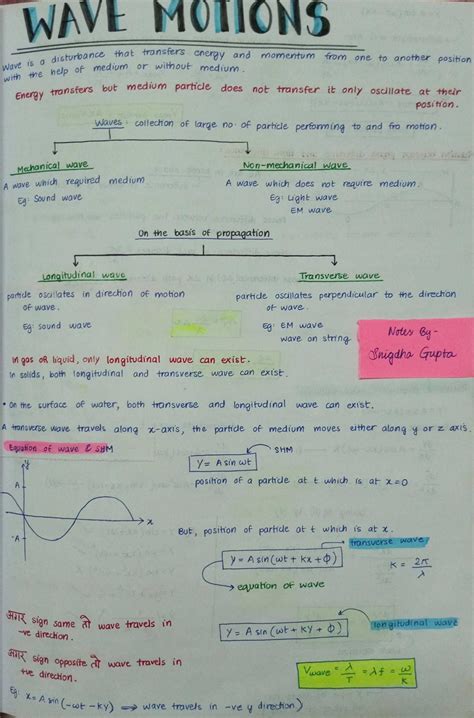 WAVE MOTIONS
Wave is a disturbance that transfers energy and momentum from one to another position
with the help of medium or without medium.
Energy transfers but medium particle does not transfer it only oscillate at their
position.
Waves : collection of large no. of particle performing to and fro motion.
Mechanical wave
Non-mechanical wave
A wave which required medium
A wave which does not require medium.
Eg: Sound wave
Eg: Light wave
EM wave
On the basis of propagation
Longitudinal wave
Transverse wave
particle oscillates in direction of motion
of wave.
particle oscillates perpendicular to the direction
of wave.
Eg sound wave
Eg: EM wave
wave on string
Notes By-
Snigdha Gupta
In gas or liquid, only longitudinal wave can exist.
In solids, both longitudinal and transverse wave can exist.
• On the surface of water, both transverse and longitudinal wave can exist.
A transverse wave travels along x-axis, the particle of medium moves either along y or z axis.
Equation of wave & SHM
SHM
Y = A sin ωt
position of a particle at t which is at x=0
y
A
-A
x
But, position of particle at t which is at x.
transverse wave
Y = A sin (ωt + kx + ϕ)
K = 2π/λ
equation of wave
longitudinal wave
Y = A sin (ωt + ky + ϕ)
अगर sign same तो wave travels in
-ve direction.
अगर sign opposite तो wave travels in
+ve direction.
Vwave = λ/T = λf = ω/K
Eg: x = A sin (-ωt - ky) ⇒ wave travels in -ve y direction)